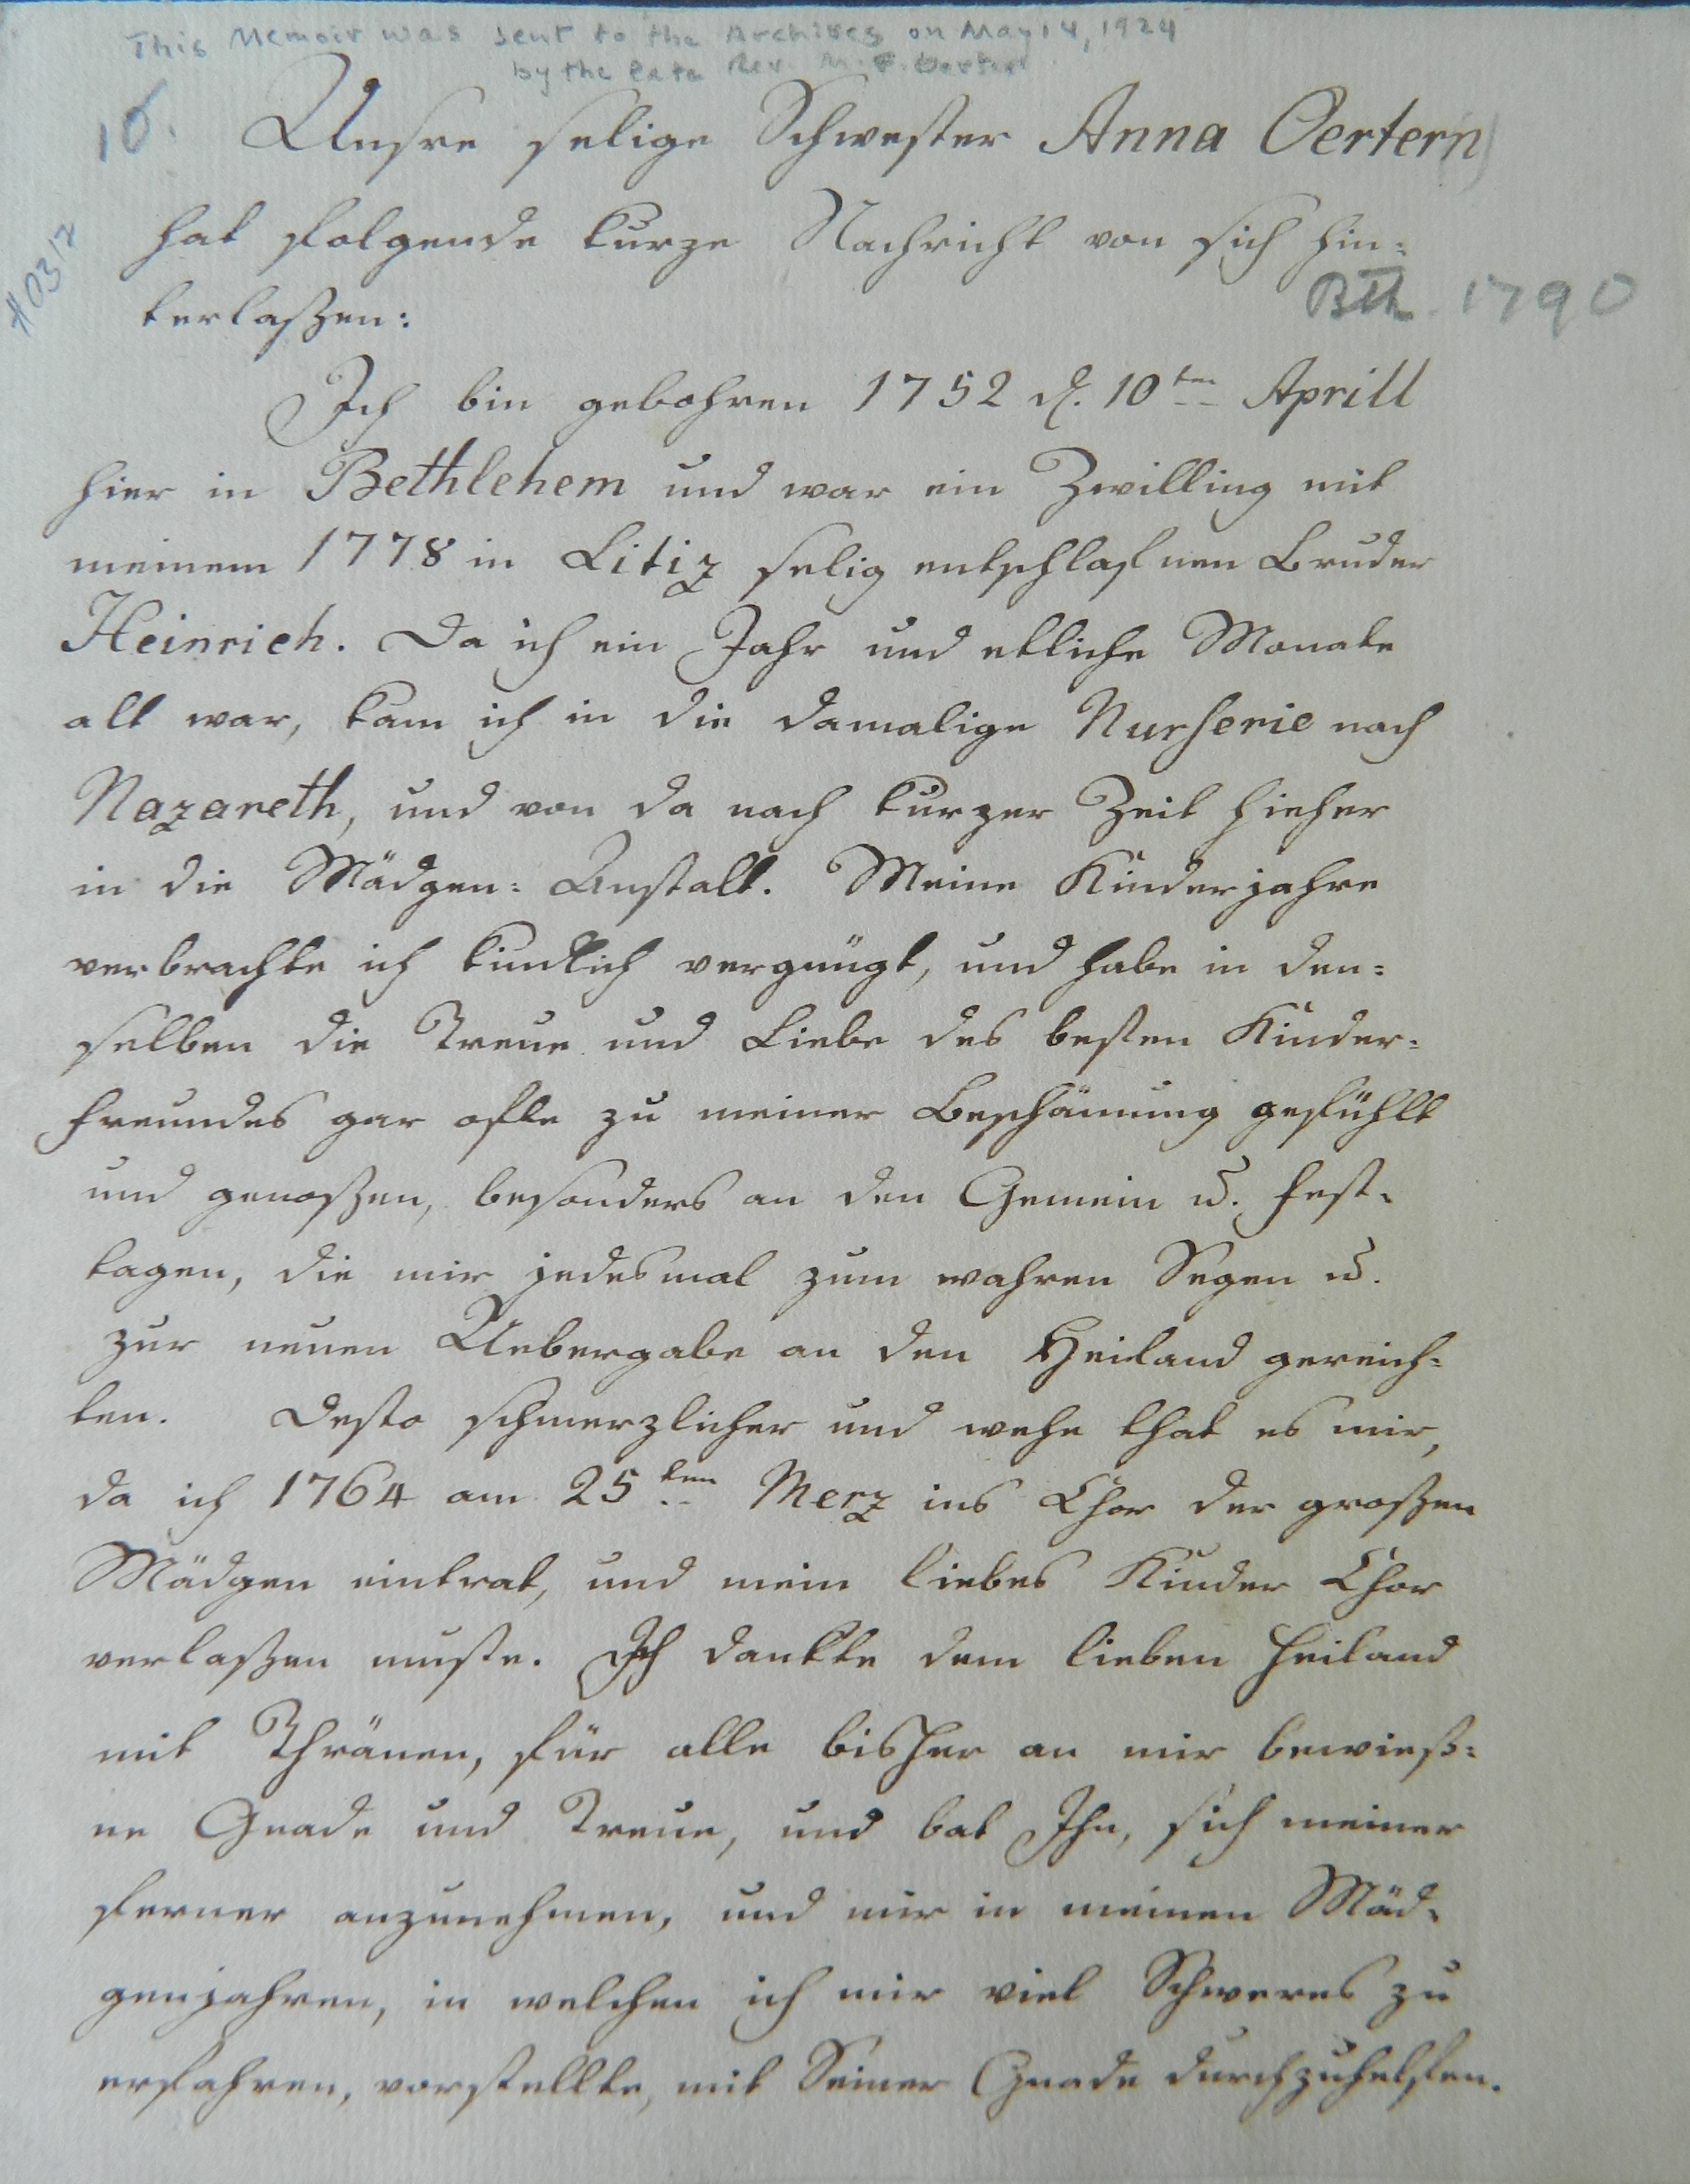 This Memoir was sent to the Archives on May 14, 1924
by the late Rev. M. F. Oerter
16. Unsre selige Schwester Anna Oertern)
hat folgende kurze Nachricht von sich hin:
#0312
terlaßen:
Bth. 1790
Ich bin gebohren 1752 d. 10ten Aprill
hier in Bethlehem und war ein Zwilling mit
meinem 1778 in Litiz selig entschlafnen Bruder
Heinrich. Da ich ein Jahr und etliche Monate
alt war, kam ich in die damalige Nurserie nach
Nazareth, und von da nach kurzer Zeit hieher
in die Mädgen: Anstalt. Meine Kinderjahre
verbrachte ich kindlich vergnügt, und habe in den:
selben die Treue und Liebe des besten Kinder:
freundes gar ofte zu meiner Beschämung gefühlt
und genoßen, besonders an den Gemein u. Fest:
tagen, die mir jedesmal zum wahren Segen u.
zur neuen Uebergabe an den Heiland gereich:
ten. Desto schmerzlicher und wehe that es mir,
da ich 1764 am 25ten Merz ins Chor der großen
Mädgen eintrat, und mein liebes Kinder Chor
verlaßen muste. Ich dankte dem lieben Heiland
mit Thränen, für alle bisher an mir bewieß:
ne Gnade und Treue, und bat Ihn, sich meiner
ferner anzunehmen, und mir in meinen Mäd:
genjahren, in welchen ich mir viel Schweres zu
erfahren, vorstellte, mit Seiner Gnade durchzuhelfen.